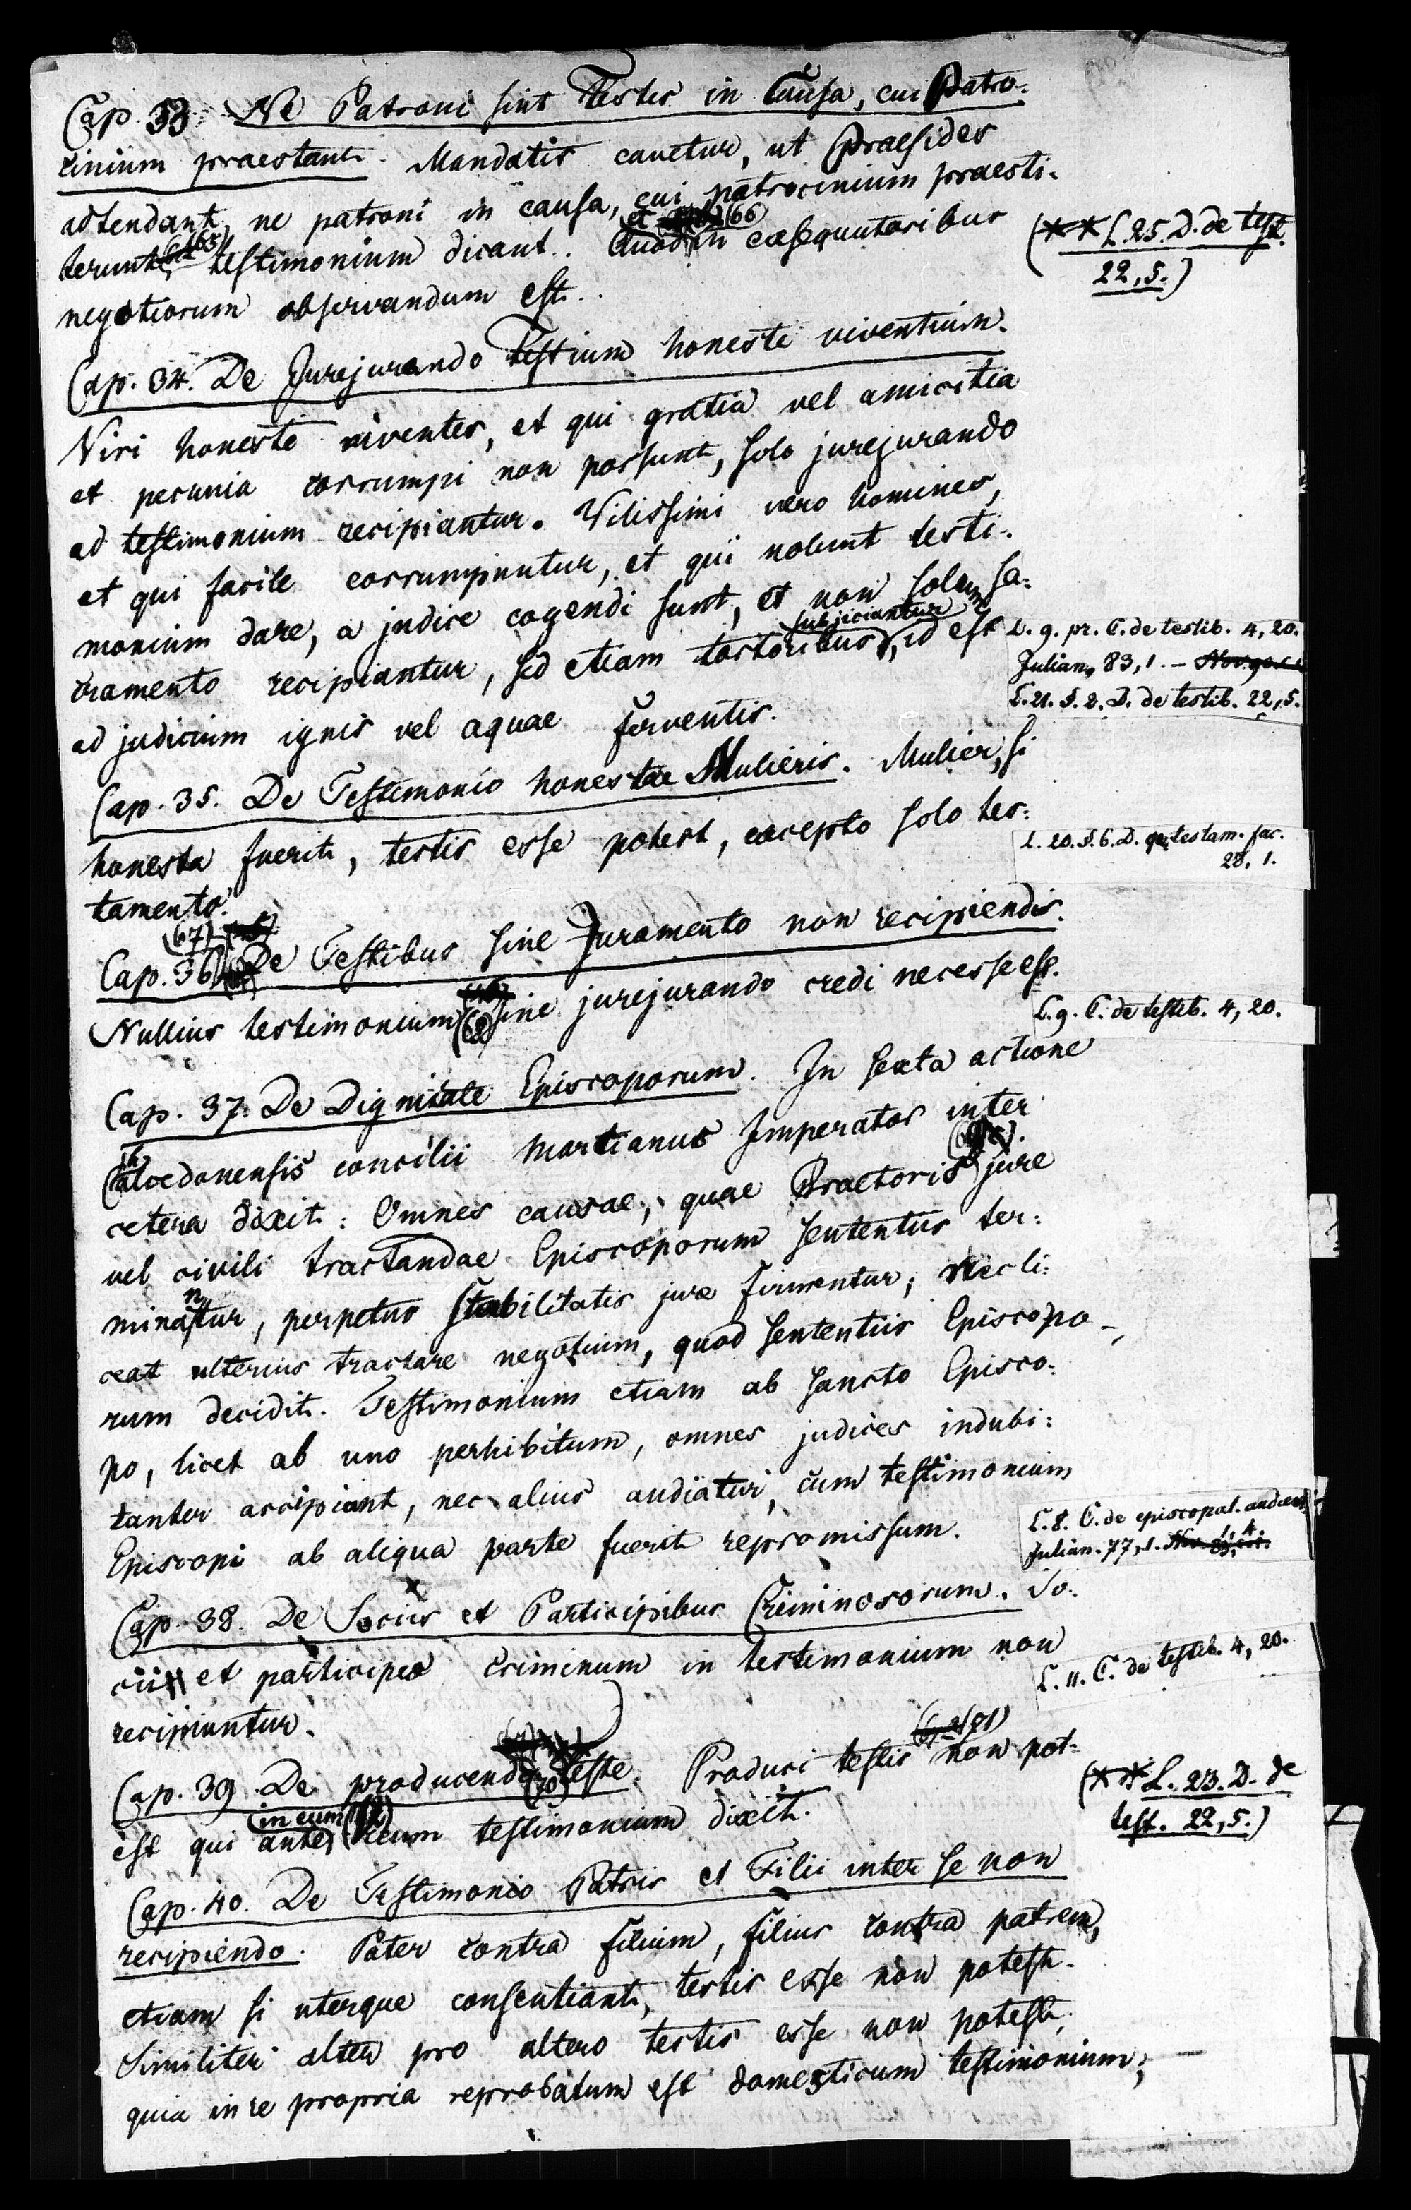 Cap. 33. Ne Patroni sint Testes in Causa, cui Patro-
cinium praestant. Mandatis cavetur, ut Praesides
adtendant, ne patroni in causa, cui patrocinium praesti-
terunt (65) testimonium dicant. Quod et (66) in exsequutoribus
(** L. 25. D. de test.
22, 5.)
negotiorum observandum est.
Cap. 34. De Jurejurando Testium honeste viventium.
Viri honeste viventes, et qui gratia vel amicitia
et pecunia corrumpi non possunt, solo jurejurando
ad testimonium recipiantur. Vilissimi vero homines,
et qui facile corrumpuntur, et qui nolunt testi-
monium dare, a judice cogendi sunt, et non solum sa-
cramento recipiantur, sed etiam tortoribus subjiciantur, id est
L. 9. pr. C. de testib. 4, 20.
Julian. 83, 1. –
L. 21. §. 2. D. de testib. 22, 5.
ad judicium ignis vel aquae ferventis.
Cap. 35. De Testimonio honestae Mulieris. Mulier, si
honesta fuerit, testis esse potest, excepto solo tes-
L. 20. §. 6. D. qui testam. fac.
28, 1.
tamento.
(67)
Cap. 36. De Testibus sine Juramento non recipiendis.
Nullius testimonium (68) sine jurejurando credi necesse est.
L. 9. C. de testib. 4, 20.
Cap. 37. De Dignitate Episcoporum. In sexta actione
Chalcedonensis concilii Martianus Imperator inter
cetera dixit: Omnes causae, quae Praetoris jure
vel civili tractandae Episcoporum sententiis ter-
minantur, perpetuo stabilitatis jure firmentur; nec li-
ceat ulterius tractare negotium, quod sententiis Episcopo-
rum decidit. Testimonium etiam ab sancto Episco-
po, licet ab uno perhibitum, omnes judices indubi-
tanter accipiant, nec alius audiatur, cum testimonium
Episcopi ab aliqua parte fuerit repromissum.
L. 8. C. de episcopal. audient. 1, 4.
Julian. 77, 1.
Cap. 38. De Sociis et Participibus Criminosorum. So-
cii et participes criminum in testimonium non
L. 11. C. de testib. 4, 20.
recipiuntur.
Cap. 39. De producendo (70) Teste. Produci testis (71) non pot-
est qui ante in eum reum testimonium dixit.
(** L. 23. D. de
test. 22, 5.)
Cap. 40. De Testimonio Patris et Filii inter se non
recipiendo. Pater contra filium, filius contra patrem,
etiam si uterque consentiant, testis esse non potest.
Similiter alter pro altero testis esse non potest,
quia in re propria reprobatum est domesticum testimonium;